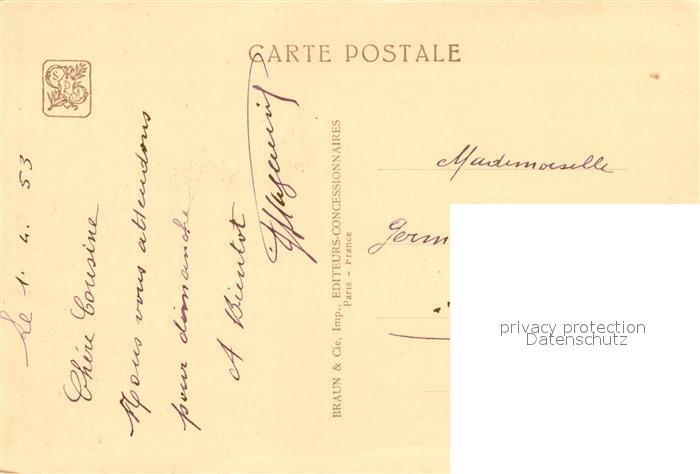 CARTE POSTALE
Le 1. 4. 53
Chère Cousine
Nous vous attendons
pour dimanche
A Bientot
BRAUN & Cie, Imp., EDITEURS-CONCESSIONNAIRES
Paris - France
Mademoiselle
Germ
privacy protection
Datenschutz